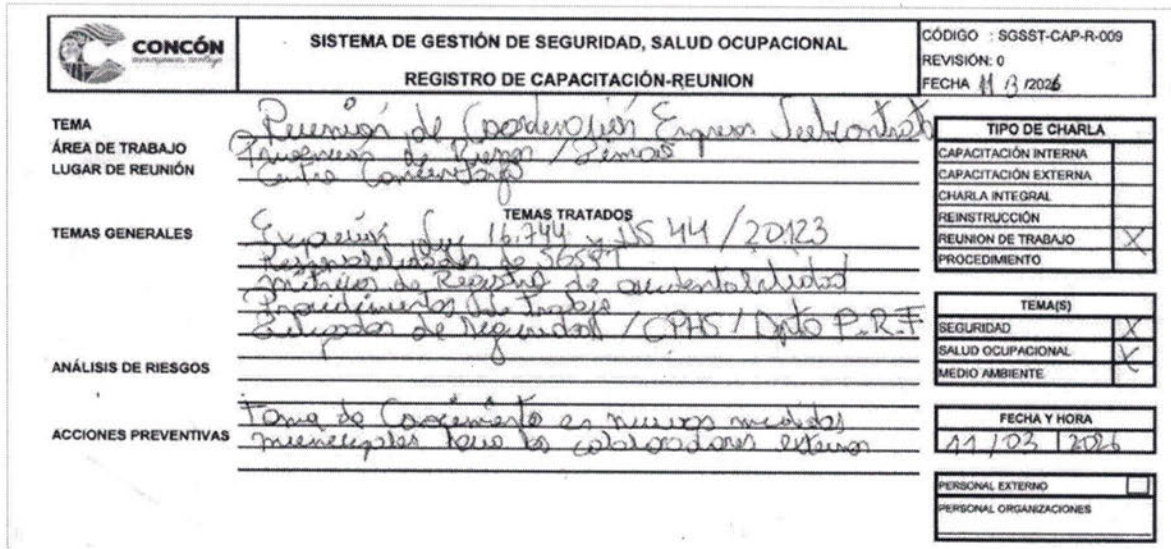 CONCÓN
SISTEMA DE GESTIÓN DE SEGURIDAD, SALUD OCUPACIONAL
REGISTRO DE CAPACITACIÓN-REUNION
CÓDIGO : SGSST-CAP-R-009
REVISIÓN: 0
FECHA 11 /3 /2026
TEMA Reunión de Coordenación Empresa Subcontrato
ÁREA DE TRABAJO Prevención de Riesgos /
LUGAR DE REUNIÓN Centro
TEMAS TRATADOS
TEMAS GENERALES Ley 16.744 y DS 44 / 20.123
Responsabilidades de SGSST
de Registro de accidentabilidad
Procedimientos de trabajo
de seguridad / CPHS / Dpto P.R.F
ANÁLISIS DE RIESGOS
ACCIONES PREVENTIVAS Toma de Conocimiento en nuevas medidas
municipales para los colaboradores externos
TIPO DE CHARLA
CAPACITACIÓN INTERNA
CAPACITACIÓN EXTERNA
CHARLA INTEGRAL
REINSTRUCCIÓN
REUNION DE TRABAJO X
PROCEDIMIENTO
TEMA(S)
SEGURIDAD X
SALUD OCUPACIONAL X
MEDIO AMBIENTE
FECHA Y HORA
11/03 2026
PERSONAL EXTERNO
PERSONAL ORGANIZACIONES